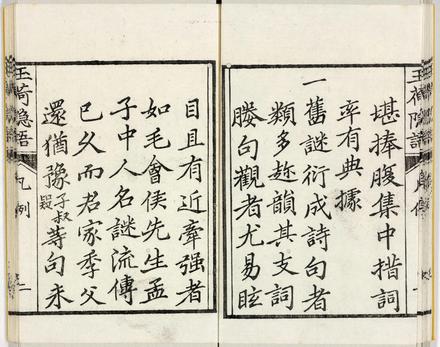 堪捧腹集中措詞
率有典據
一舊謎衍成詩句者
類多趂韻其支詞
賸句觀者尤易眩
目且有近牽强者
如毛會侯先生孟
子中人名謎流傳
已久而君家季父
還猶豫子叔疑等句未
玉荷隱語
凡例
一